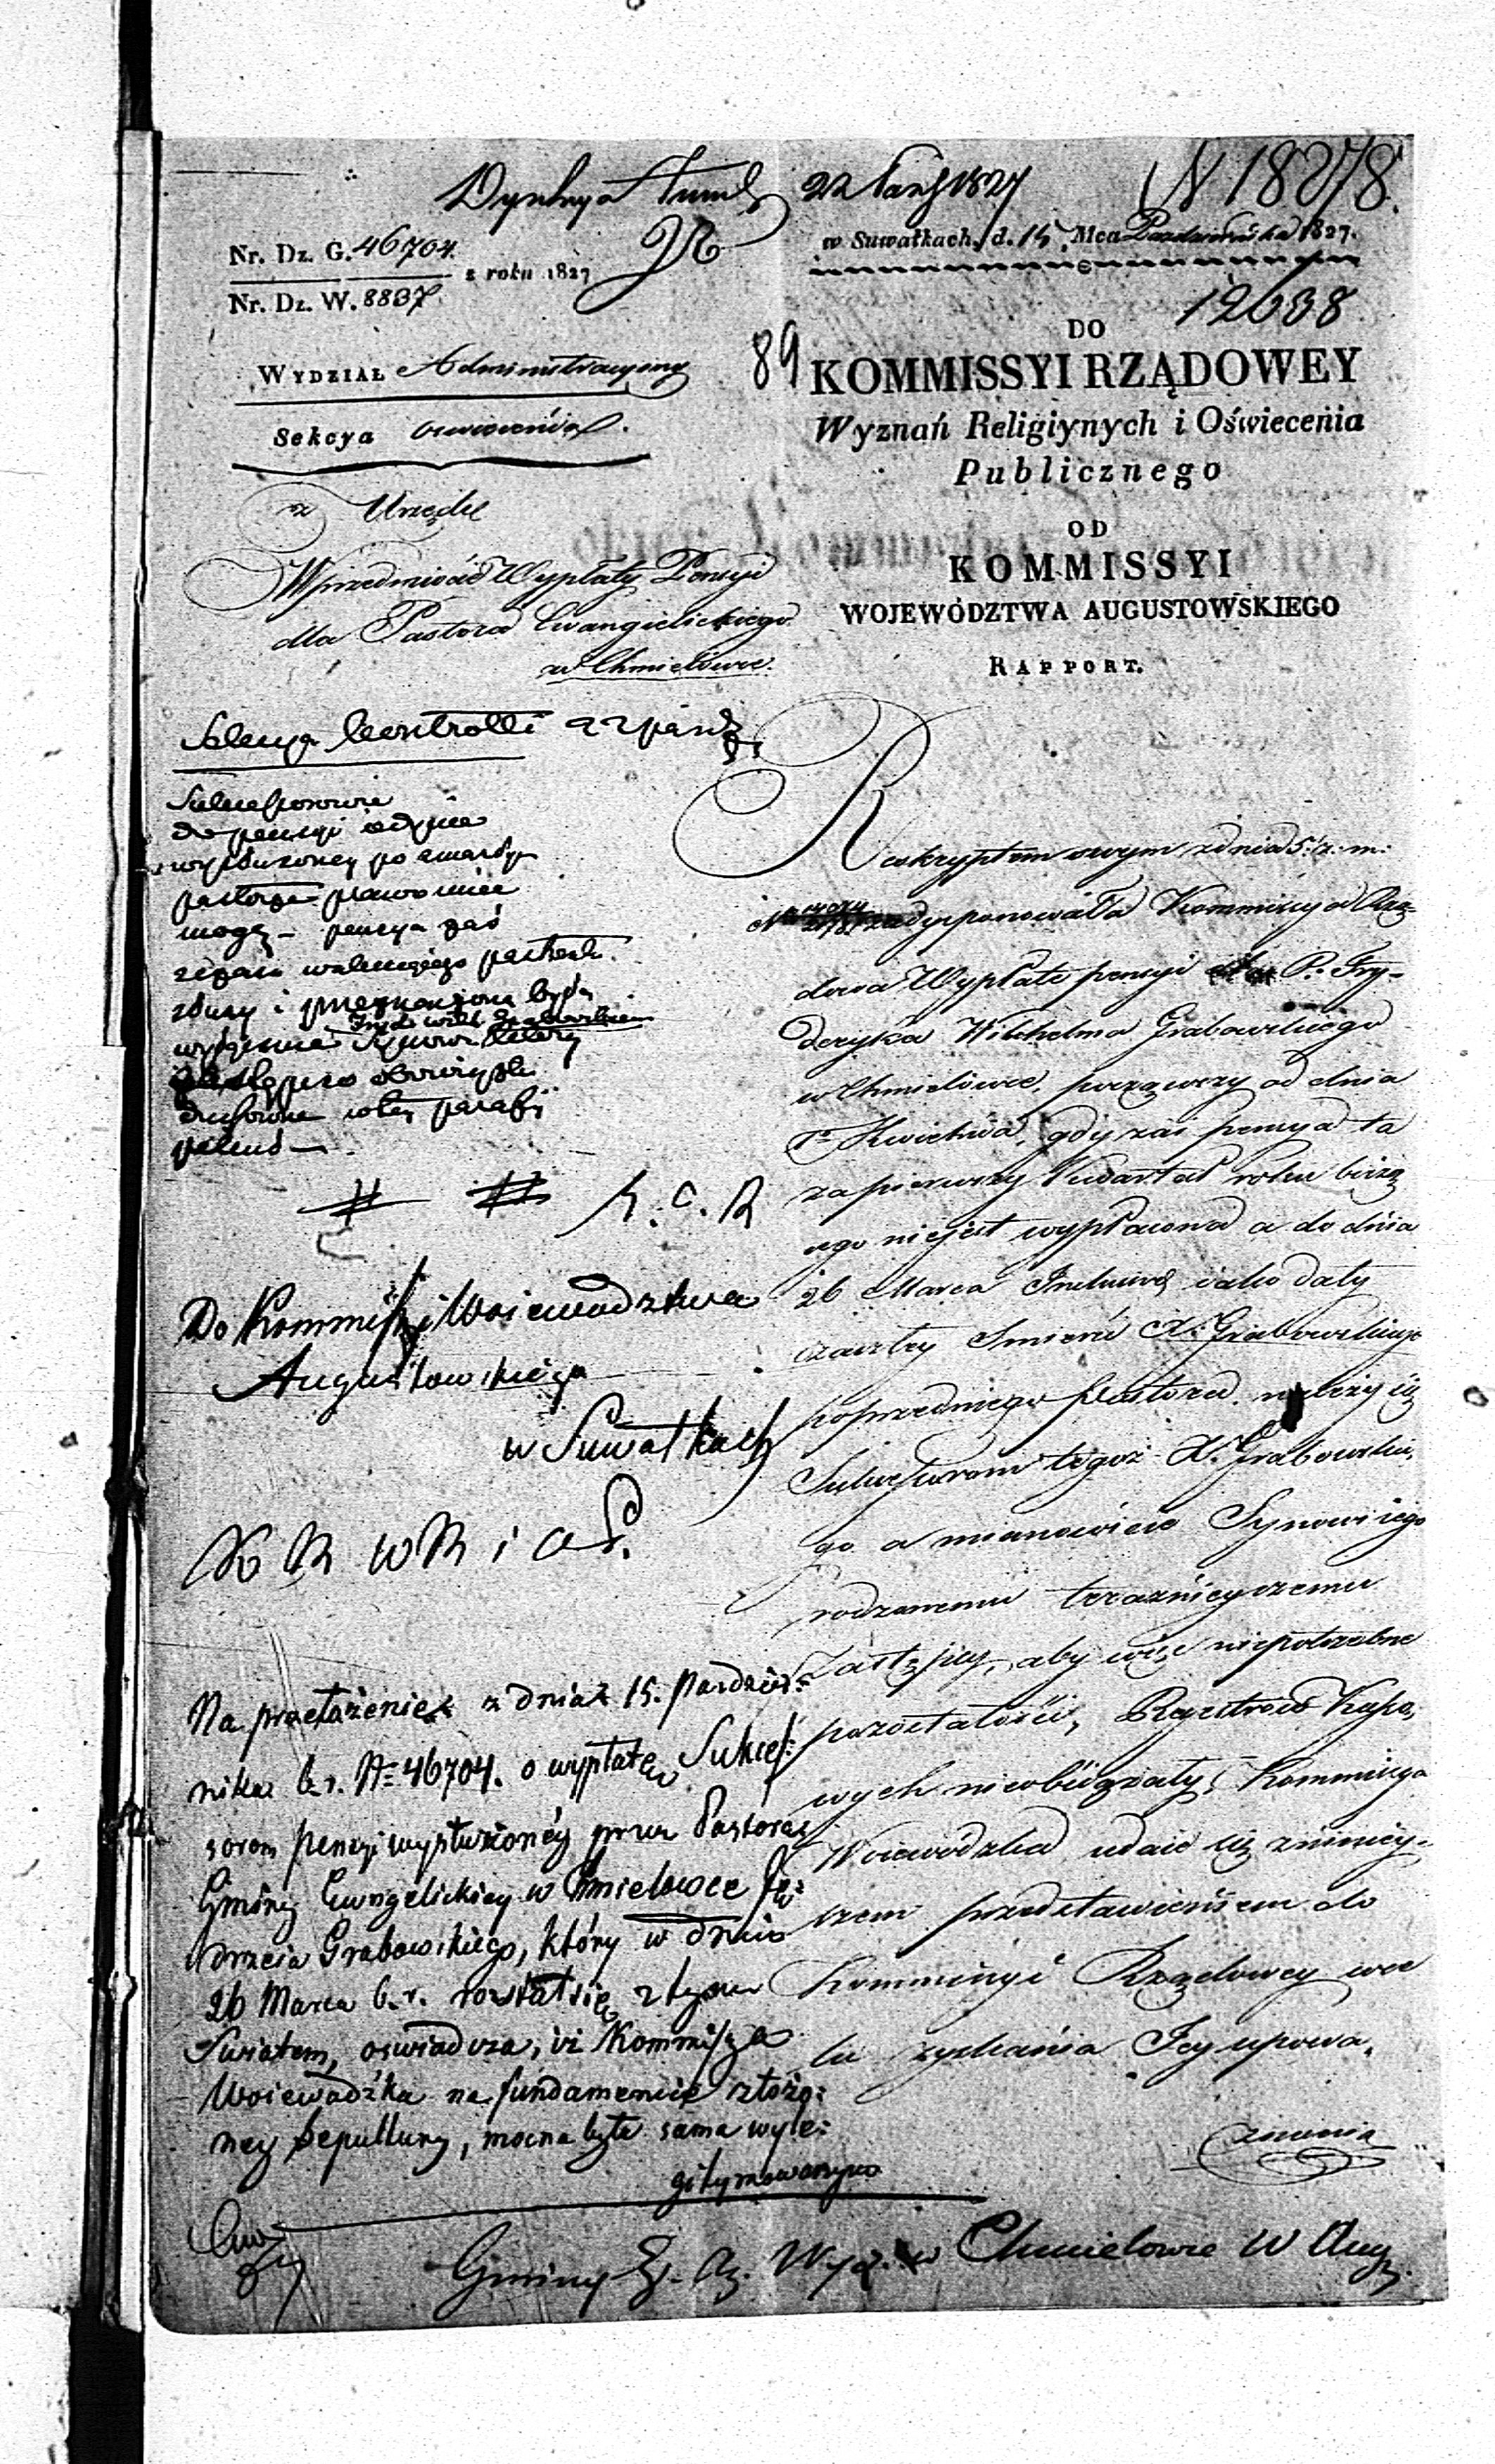 22 1827
N 18278.
Nr. Dz. G. 46704.
z roku 1827
Nr. Dz. W. 8837
w Suwałkach d. 15 Mca Października 1827.
12038
89
WYDZIAŁ Administracyiny
Sekcya oswiecenia.
DO
KOMMISSYI RZĄDOWEY
Wyznań Religiynych i Oświecenia
Publicznego
OD
KOMMISSYI
WOJEWÓDZTWA AUGUSTOWSKIEGO
RAPPORT.
z Urzędu
W przedmiocie Wypłaty Pensyi
dla Pastora Ewangielickiego
w Chmielówce.
Sekcya Kontrolli
Sukcessorowie
do pensyi iedynie
wysłużoney po zmarłym
pastorze prawo mieć
mogą – pensya zaś
duchowne w tey parafii
pełni –
K. C. R
Do Kommissyi Woiewodztwa
Augustowskiego
w Suwałkach
K R W R i O P.
Na przełożenie z dnia 15. Pazdzier:
nika b. r. N= 46704. o wypłatę Sukces:
sorom pensyi wysłużoney przez Pastora
Gminy Ewangelickiey w Chmielowce Ję:
drzeia Grabowskiego, który w dniu
26 Marca b. r. rozstał się z tym
Swiatem, oswiadcza, iż Kommissya
Woiewodzka na fundamencie złożo:
ney Sepultury, mocna była sama wyle:
gitymowanym
Reskryptem swym z dnia 5. z. m.
zadysponowała Kommissya Rzą-
dowa Wypłatę pensyi P. Fry-
deryka Wilhelma Grabowskiego
w Chmielówce, począwszy od dnia
1º Kwietnia, gdy zaś pensya ta
za pierwszy Kwartał roku bieżą
cego nie jest wypłacona a do dnia
26 Marca Inclusive iako daty
zaszłey Smierci X. Grabowskiego
poprzedniego Pastora należy się
Sukcessorom tegoż X. Grabowskie,
go a mianowicie Synowi iego
rodzonemu teraźnieyszemu
Zastępcy, aby więc niepotrzebne
pozostałości, Rejestrów Kasso,
wych nieobciążały, Kommissya
Woiewodzka udaie się z niniey-
szem przedstawieniem do
Kommissyi Rządowey w ce
lu zyskania Jey upowa,
żnienia
Gminy Ew. Aug. Wyz. w Chmielowce W Aug.